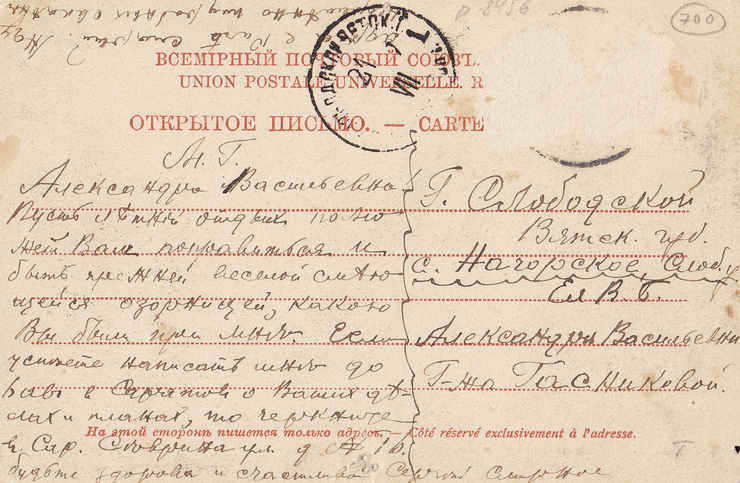 Р 8456
700
ВСЕМІРНЫЙ ПОЧТОВЫЙ СОЮЗЪ.
UNION POSTALE UNIVERSELLE. R
ОТКРЫТОЕ ПИСЬМО. — CARTE
21
VII
1
М. Г.
Александра Васильевна
Пусть лѣтній отдых помо
жет Вам поправиться и
быть прежней веселой смѣю
щейся озорницей, какою
Вы были при мнѣ. Если
успеете написать мнѣ до
в Саратов о Ваших дѣ-
лах и планах, то черкните
в Сар. ул. д. 16.
будьте здорова и счастлива Сергѣй Смирнов
Г. Слободской
Вятск. губ.
с. Нагорское Слоб. у
Ея В. Б.
Александрѣ Васильевнѣ
Г-жѣ Гасниковой.
На этой сторонѣ пишется только адресъ. — Côté réservé exclusivement à l'adresse.